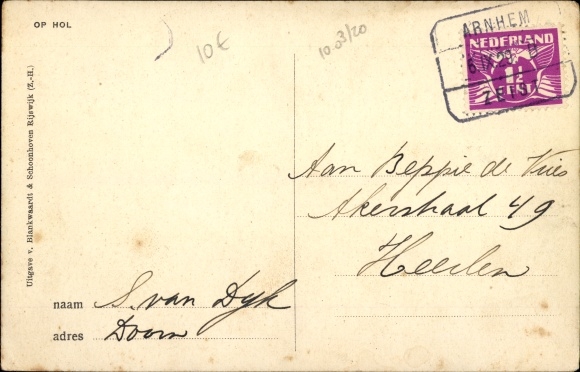 OP HOL
10 €
10.03/20
ARNHEM
ZEIST
NEDERLAND
1½
CENT
Uitgave v. Blankwaardt & Schoonhoven Rijswijk (Z.-H.)
Aan Beppie de Vries
Akerstraat 49
Heerlen
naam S. van Dyk
adres Doorn